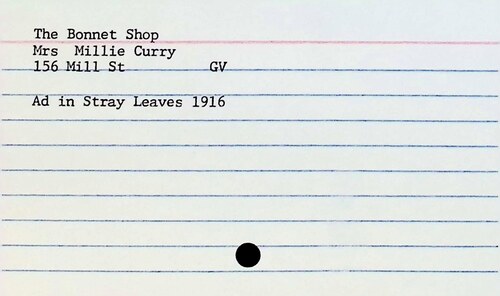 The Bonnet Shop
Mrs Millie Curry
156 Mill St GV
Ad in Stray Leaves 1916